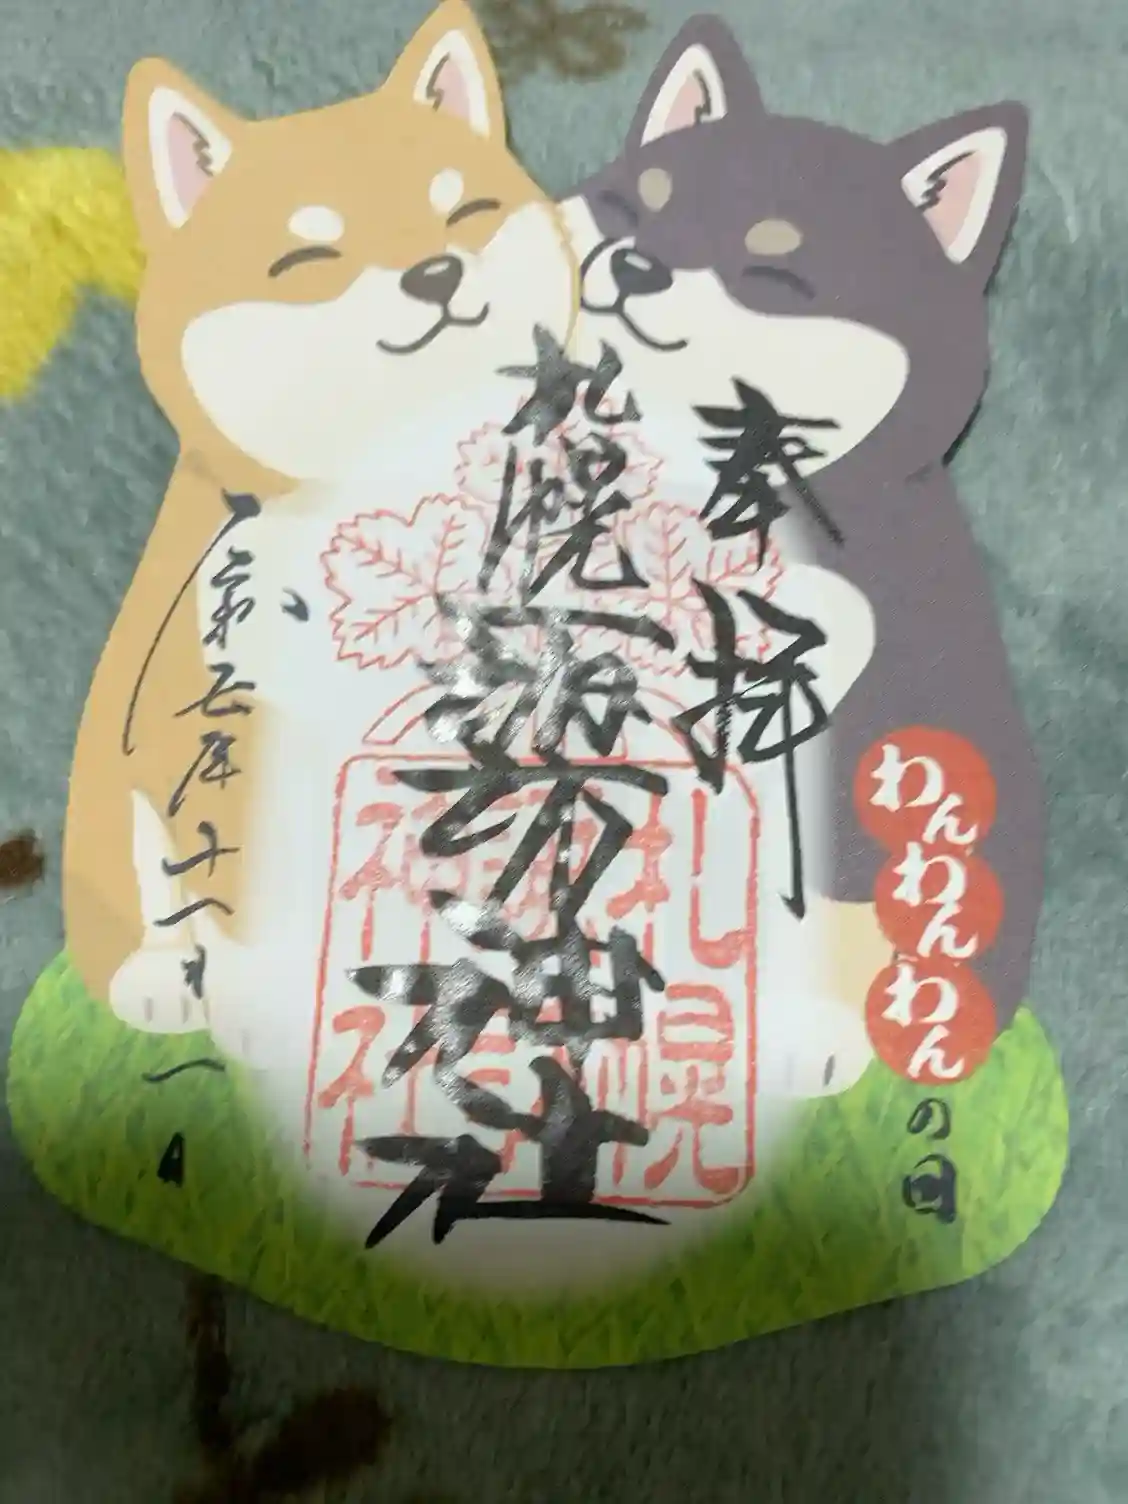 わんわんわんの日
奉拝
札幌諏訪神社
札幌
神社
令和五年十一月一日